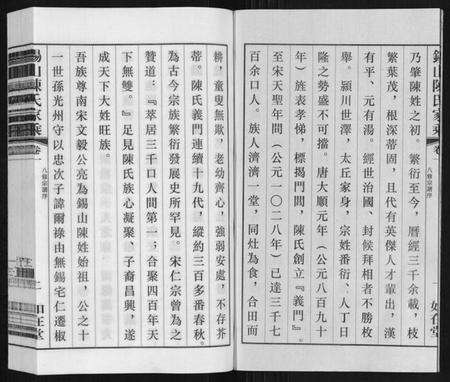 錫山陳氏家乘
乃肇陳姓之初。繁衍至今，曆經三千余載，枝
繁葉茂，根深蒂固，且代有英傑人才輩出，漢
有平、元有湯。經世治國、封候拜相者不勝枚
舉。潁川世澤，太丘家身，宗姓番衍、人丁日
隆之勢盛不可擋。唐大順元年（公元八百九十
年）旌表孝悌，標揭門閭，陳氏創立『義門』
至宋天聖年間（公元一〇二八年）已達三千七
百余口人。族人濟濟一堂，同灶為食，合田而
耕，童叟無欺，老幼齊心，強弱安處，不存芥
蒂。陳氏義門連續十九代，縱約三百多番春秋。
為古今宗族繁衍發展史所罕見。宋仁宗曾為之
贊道：『萃居三千口人間第一；合聚四百年天
下無雙。』足見陳氏族心凝聚、子裔昌興，遂
成天下大姓旺族。
吾族尊南宋文毅公亮為錫山陳姓始祖，公之十
一世孫光州守以忠次子諱爾祿由無錫宅仁遷椒
錫山陳氏家乘
卷一
八修宗譜序
二